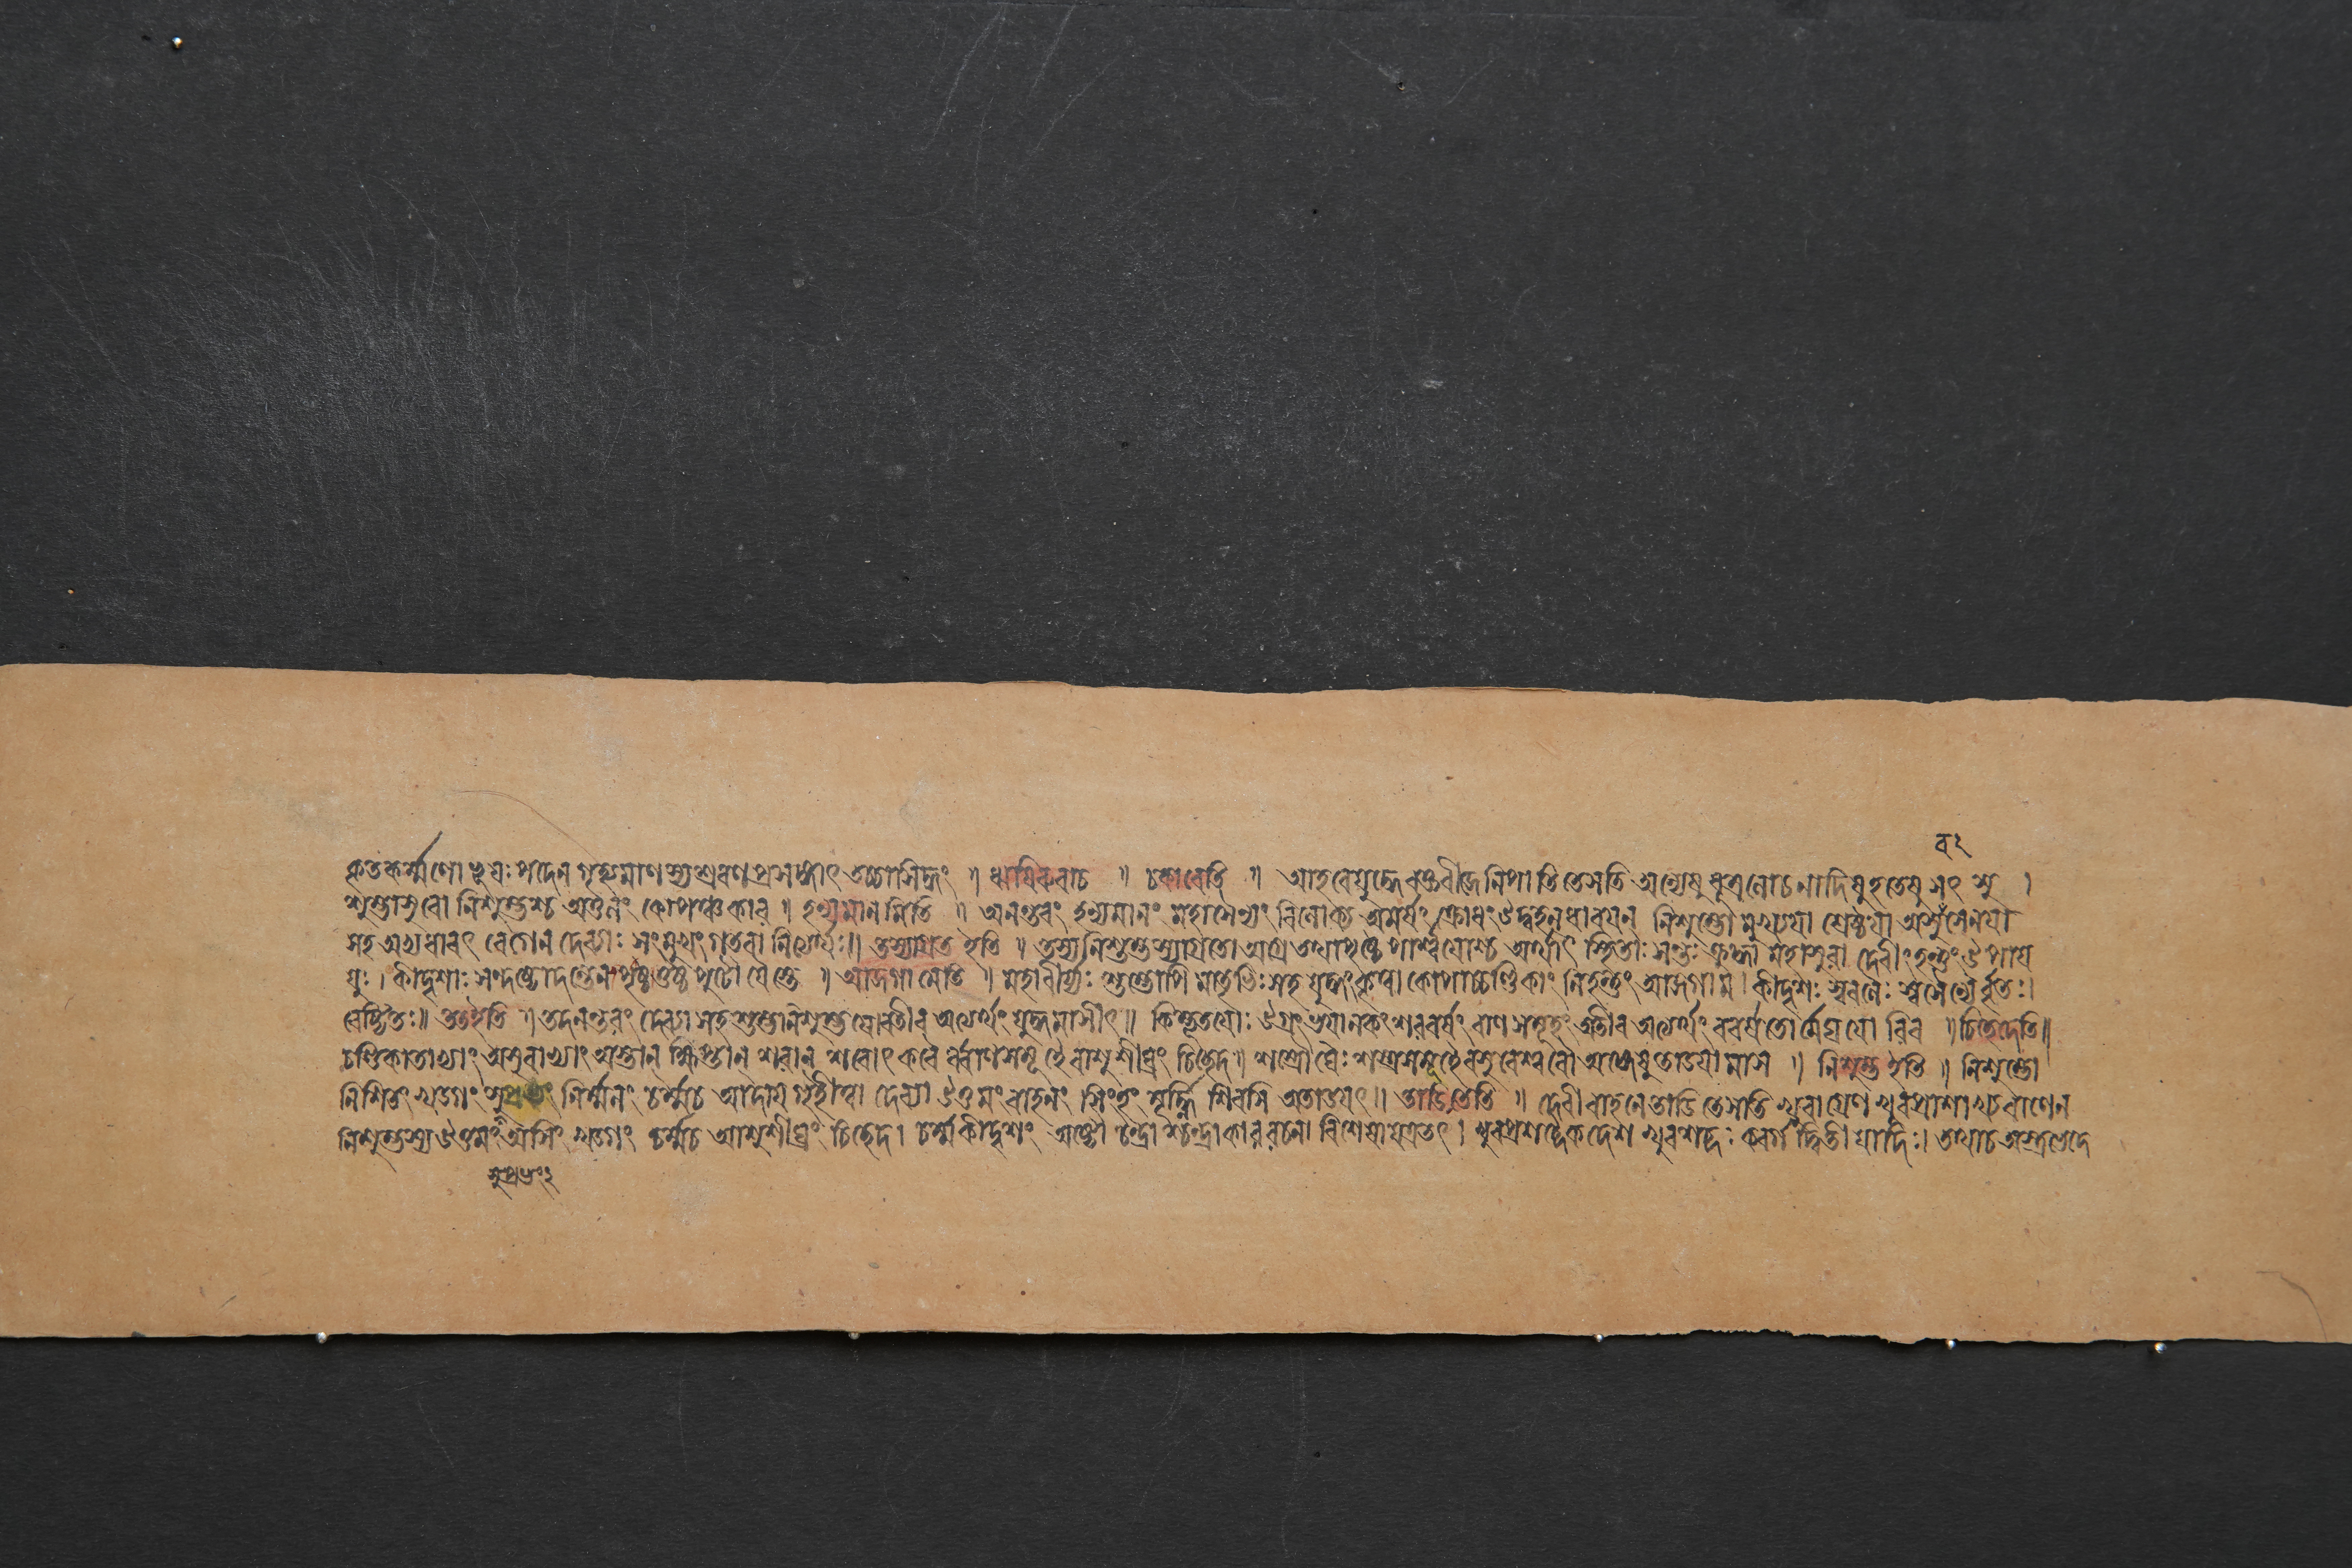 ব ২
কৃতকর্ম্মণো ভূযঃ পদেন গৃহ্যমাণস্য শ্রবণপ্রসঙ্গাৎ তচ্চাসিদ্ধং ॥ ঋষিরুবাচ ॥ চকারেতি ॥ আহবে যুদ্ধে রক্তবীজে নিপাতিতে সতি অন্যেষু ধূম্রলোচনাদিষু হতেষু সৎ শু ।
শুম্ভাসুরো নিশুম্ভশ্চ অতুলং কোপঞ্চকার ॥ হন্যমানমিতি ॥ অনন্তরং হন্যমানং মহাসৈন্যং বিলোক্য অমর্ষং ক্রোধং উদ্বহন্ ধারযন্ নিশুম্ভো মুখ্যযা শ্রেষ্ঠযা অসুরসেনযা
সহ অভ্যধাবৎ বেগেন দেব্যাঃ সংমুখং গতবানিত্যর্থঃ॥ তস্যাগ্রত ইতি ॥ তস্য নিশুম্ভস্যাগ্রতো অগ্রে তথা পৃষ্ঠে পার্শ্বযোশ্চ অর্থাৎ স্থিতাঃ সন্তঃ ক্রুদ্ধা মহাসুরা দেবীং হন্তুং উপায
যুঃ । কীদৃশাঃ সন্দষ্টো দন্তেন পৃষ্ট ওষ্ঠপুটো যৈস্তে ॥ আজগামেতি ॥ মহাবীর্য্যঃ শুম্ভোপি মাতৃভিঃ সহ যুদ্ধং কৃত্বা কোপাচ্চণ্ডিকাং নিহন্তুং আজগাম । কীদৃশঃ স্ববলৈঃ স্বসৈন্যৈর্বৃতঃ।
বেষ্টিতঃ॥ তত ইতি ॥ তদনন্তরং দেব্যা সহ শুম্ভনিশুম্ভযোরতীব অত্যর্থং যুদ্ধমাসীৎ॥ কিম্ভূতযোঃ উগ্রং ভযানকং শরবর্ষং বাণসমূহং অতীব অত্যর্থং বর্ষতোর্মেঘযোরিব ॥ চিচ্ছেদেতি॥
চণ্ডিকা তাভ্যাং অসুরাভ্যাং অস্তান্ ক্ষিপ্তান্ শরান্ শরোৎকরৈর্ব্বাণসমূহৈরাশু শীঘ্রং চিচ্ছেদ॥ শস্ত্রৌঘৈঃ শস্ত্রসমূহৈরসুরেশ্বরৌ অঙ্গেষু তাডযামাস ॥ নিশুম্ভ ইতি ॥ নিশুম্ভো
নিশিতং খড্গং সুপ্রভং নির্ম্মলং চর্ম্ম চ আদায গৃহীত্বা দেব্যা উত্তমং বাহনং সিংহং মূর্দ্ধ্নি শিরসি অতাডযৎ॥ তাডিতেতি ॥ দেবী বাহনে তাডিতে সতি ক্ষুরাগ্রেণ ক্ষুরপ্রাখ্যবাণেন
নিশুম্ভস্য উত্তমং অসিং খড্গং চর্ম্ম চ আশু শীঘ্রং চিচ্ছেদ। চর্ম্ম কীদৃশং অষ্টৌ চন্দ্রাশ্চন্দ্রাকাররচনা বিশেষা যত্র তৎ । ক্ষুরপ্রশব্দৈকদেশ ক্ষুরশব্দঃ কবর্গদ্বিতীযাদিঃ। তথাচ অস্ত্রভেদে
সুপ্রভং ২